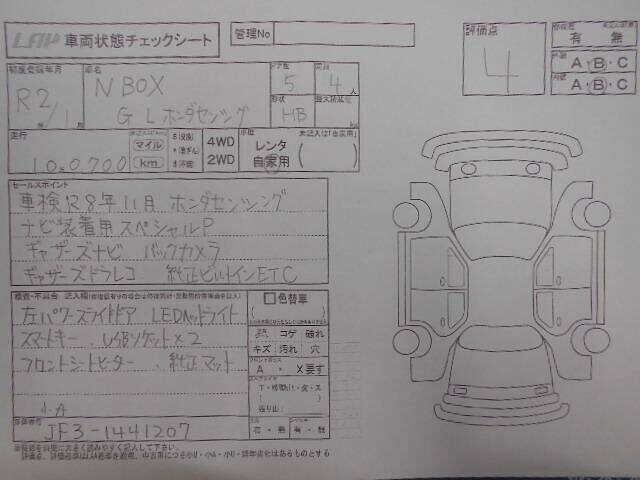 LAA 車両状態チェックシート
管理No
評価点
4
有 無
外装 A・B・C
内装 A・B・C
初度登録年月 車名 ドア数 定員
R2/1月 N BOX 5 4人
GL ホンダセンシング 形状 HB 最大積載量
走行
10.0700 マイル km
4WD
2WD
車歴
レンタ
自家用
未記入は「自家用」
セールスポイント
車検R8年11月 ホンダセンシング
ナビ装着用スペシャルP
ギャザーズナビ バックカメラ
ギャザーズドラレコ 純正ビルトインETC
色替車
左パワースライドドア LEDヘッドライト
スマートキー、USBソケット×2
フロントシートヒーター、純正マット
コゲ 破れ
キズ 汚れ 穴
A ・ X要す
小A
有・無 有・無
車台番号
JF3-1441207